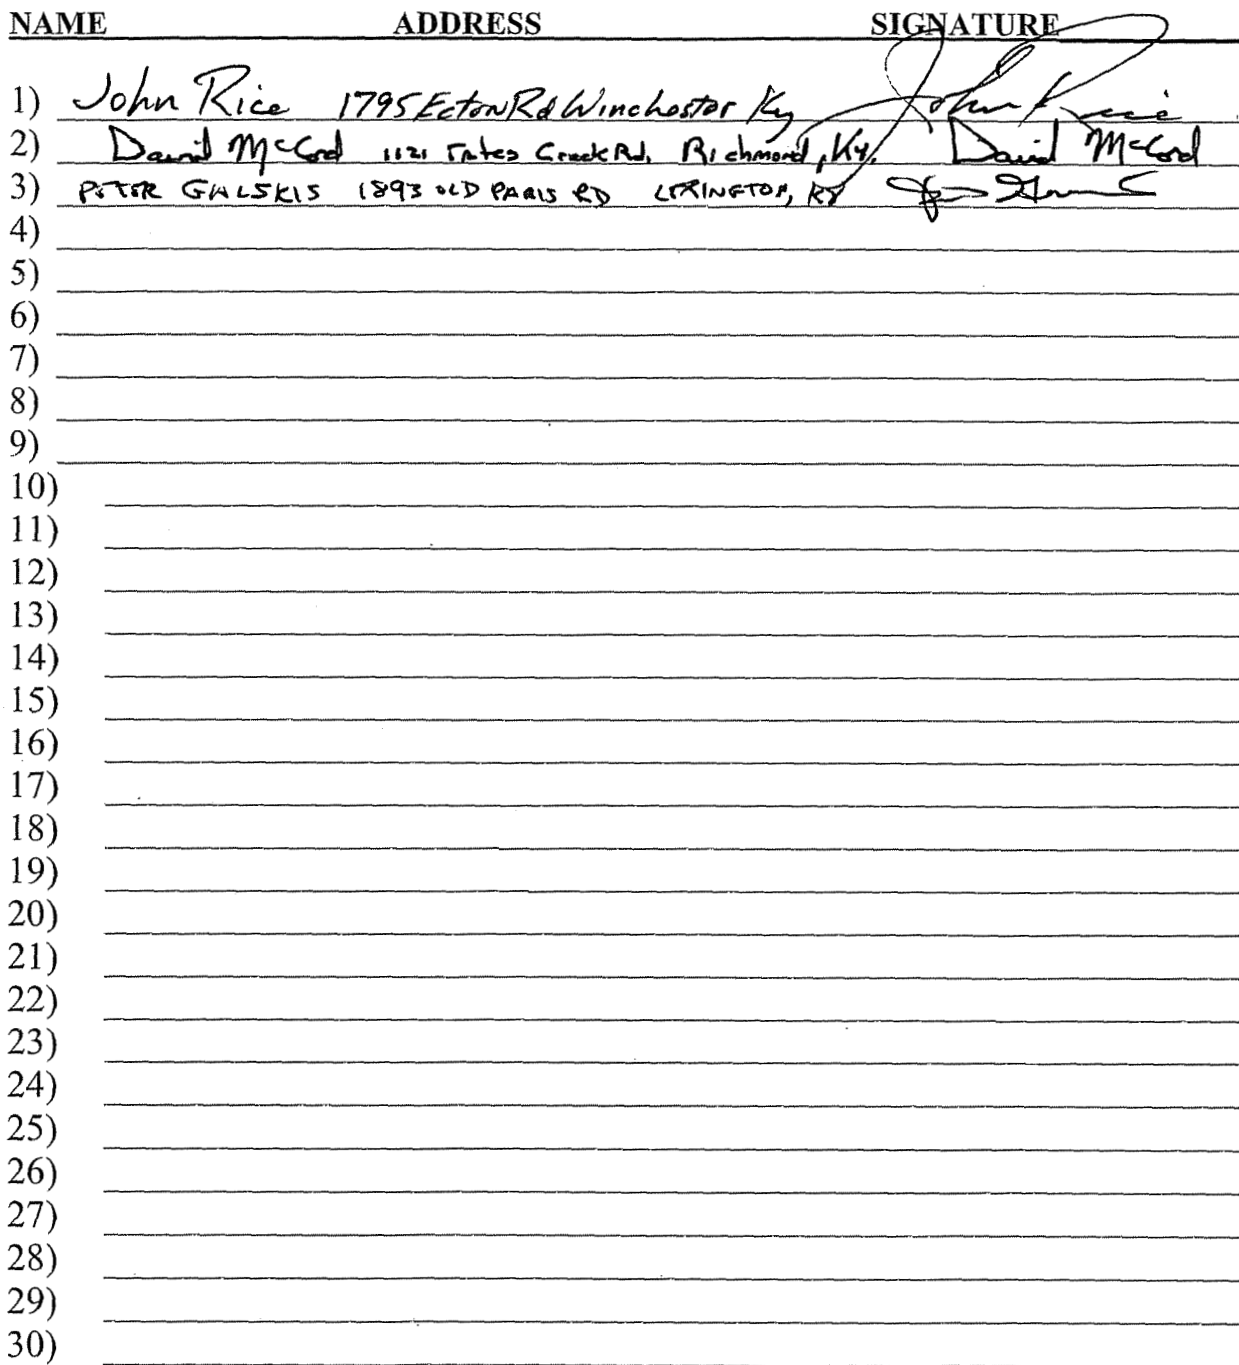 NAME ADDRESS SIGNATURE
1) John Rice 1795 Ecton Rd Winchester Ky John Rice
2) David McCord 1121 Tates Creek Rd. Richmond, Ky. David McCord
3) PETER GALSKIS 1893 OLD PARIS RD LEXINGTON, KY
4)
5)
6)
7)
8)
9)
10)
11)
12)
13)
14)
15)
16)
17)
18)
19)
20)
21)
22)
23)
24)
25)
26)
27)
28)
29)
30)